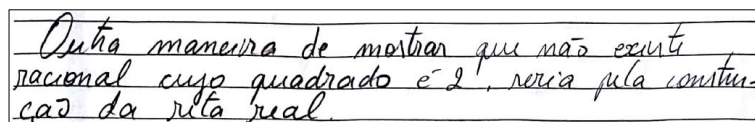 Outra maneira de mostrar que não existe
racional cujo quadrado é 2, seria pela constru-
ção da reta real.